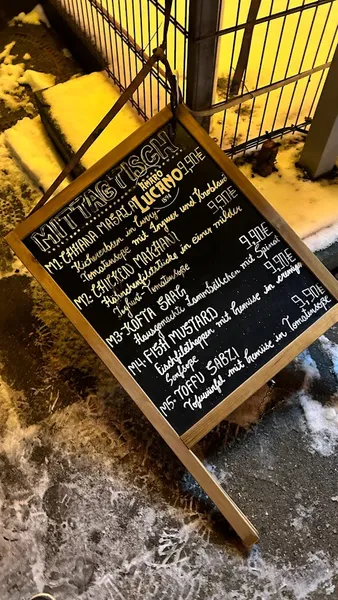 MITTAGTISCH
AMARO
LUCANO
M1- CHANA MASALA 9,90€
Kichererbsen in Curry-
Tomatensoße mit Ingwer und Knoblauch
M2- CHICKEN MAKHANI 9,90€
Hähnchenfiletstücke in einer milden
Joghurt-Tomatensoße
M3- KOFTA SAAG 9,90€
Hausgemachte Lammbällchen mit Spinat
M4- FISH MUSTARD 9,90€
Fischfilethappen mit Gemüse in cremiger
Senfsoße
M5- TOFFU SABZI 9,90€
Tofuwürfel mit Gemüse in Tomatensoße